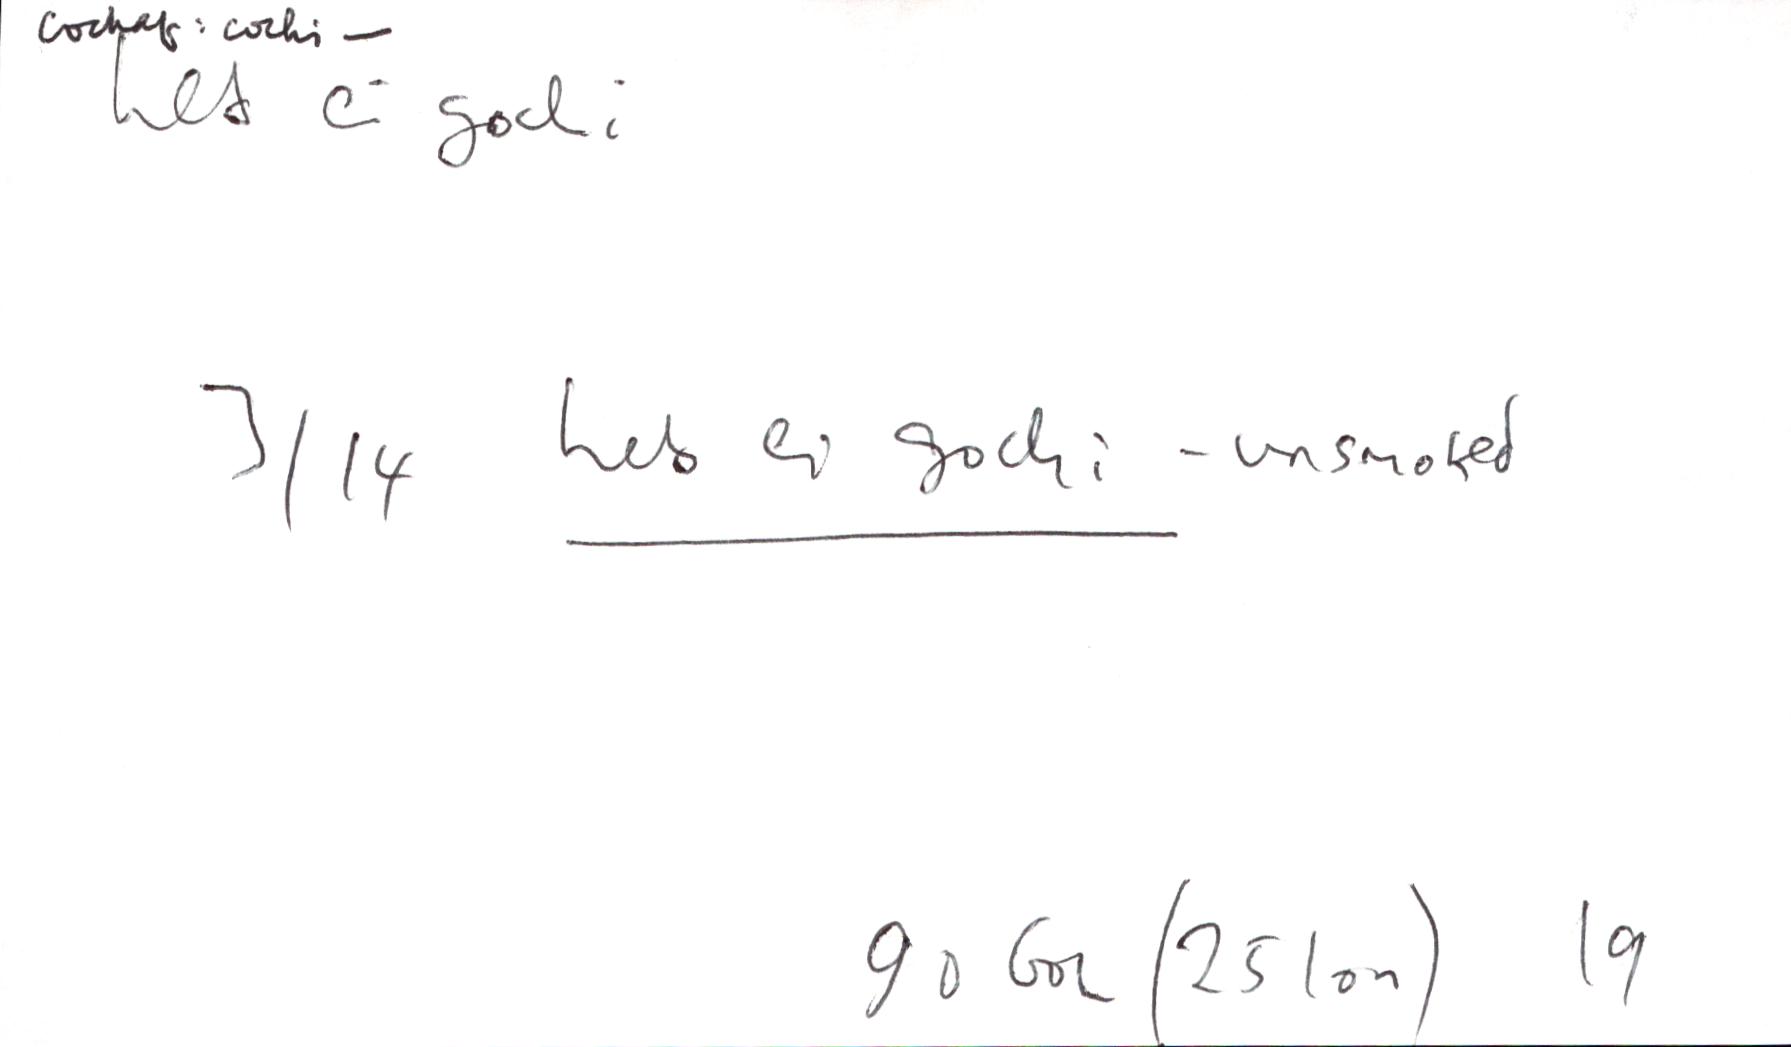 cochaf: cochi —
heb ei gochi
7/14 heb ei gochi - unsmoked
90 Gor (25 Ion) 19